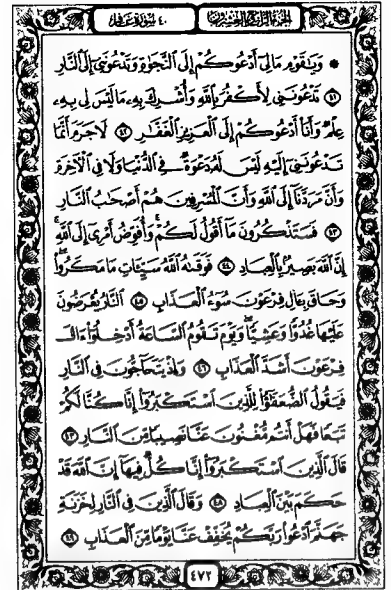 الجزء الرابع والعشرون
٤٠ سورة غافر
۞ وَيَٰقَوْمِ مَا لِىٓ أَدْعُوكُمْ إِلَى ٱلنَّجَوٰةِ وَتَدْعُونَنِىٓ إِلَى ٱلنَّارِ
٤١ تَدْعُونَنِى لِأَكْفُرَ بِٱللَّهِ وَأُشْرِكَ بِهِۦ مَا لَيْسَ لِى بِهِۦ
عِلْمٌ وَأَنَا۠ أَدْعُوكُمْ إِلَى ٱلْعَزِيزِ ٱلْغَفَّٰرِ ٤٢ لَا جَرَمَ أَنَّمَا
تَدْعُونَنِىٓ إِلَيْهِ لَيْسَ لَهُۥ دَعْوَةٌ فِى ٱلدُّنْيَا وَلَا فِى ٱلْءَاخِرَةِ
وَأَنَّ مَرَدَّنَآ إِلَى ٱللَّهِ وَأَنَّ ٱلْمُسْرِفِينَ هُمْ أَصْحَٰبُ ٱلنَّارِ
٤٣ فَسَتَذْكُرُونَ مَآ أَقُولُ لَكُمْ وَأُفَوِّضُ أَمْرِىٓ إِلَى ٱللَّهِ
إِنَّ ٱللَّهَ بَصِيرٌۢ بِٱلْعِبَادِ ٤٤ فَوَقَىٰهُ ٱللَّهُ سَيِّـَٔاتِ مَا مَكَرُوا۟
وَحَاقَ بِـَٔالِ فِرْعَوْنَ سُوٓءُ ٱلْعَذَابِ ٤٥ ٱلنَّارُ يُعْرَضُونَ
عَلَيْهَا غُدُوًّا وَعَشِيًّا وَيَوْمَ تَقُومُ ٱلسَّاعَةُ أَدْخِلُوٓا۟ ءَالَ
فِرْعَوْنَ أَشَدَّ ٱلْعَذَابِ ٤٦ وَإِذْ يَتَحَآجُّونَ فِى ٱلنَّارِ
فَيَقُولُ ٱلضُّعَفَٰٓؤُا۟ لِلَّذِينَ ٱسْتَكْبَرُوٓا۟ إِنَّا كُنَّا لَكُمْ
تَبَعًا فَهَلْ أَنتُم مُّغْنُونَ عَنَّا نَصِيبًا مِّنَ ٱلنَّارِ ٤٧
قَالَ ٱلَّذِينَ ٱسْتَكْبَرُوٓا۟ إِنَّا كُلٌّ فِيهَآ إِنَّ ٱللَّهَ قَدْ
حَكَمَ بَيْنَ ٱلْعِبَادِ ٤٨ وَقَالَ ٱلَّذِينَ فِى ٱلنَّارِ لِخَزَنَةِ
جَهَنَّمَ ٱدْعُوا۟ رَبَّكُمْ يُخَفِّفْ عَنَّا يَوْمًا مِّنَ ٱلْعَذَابِ ٤٩
٤٧٢